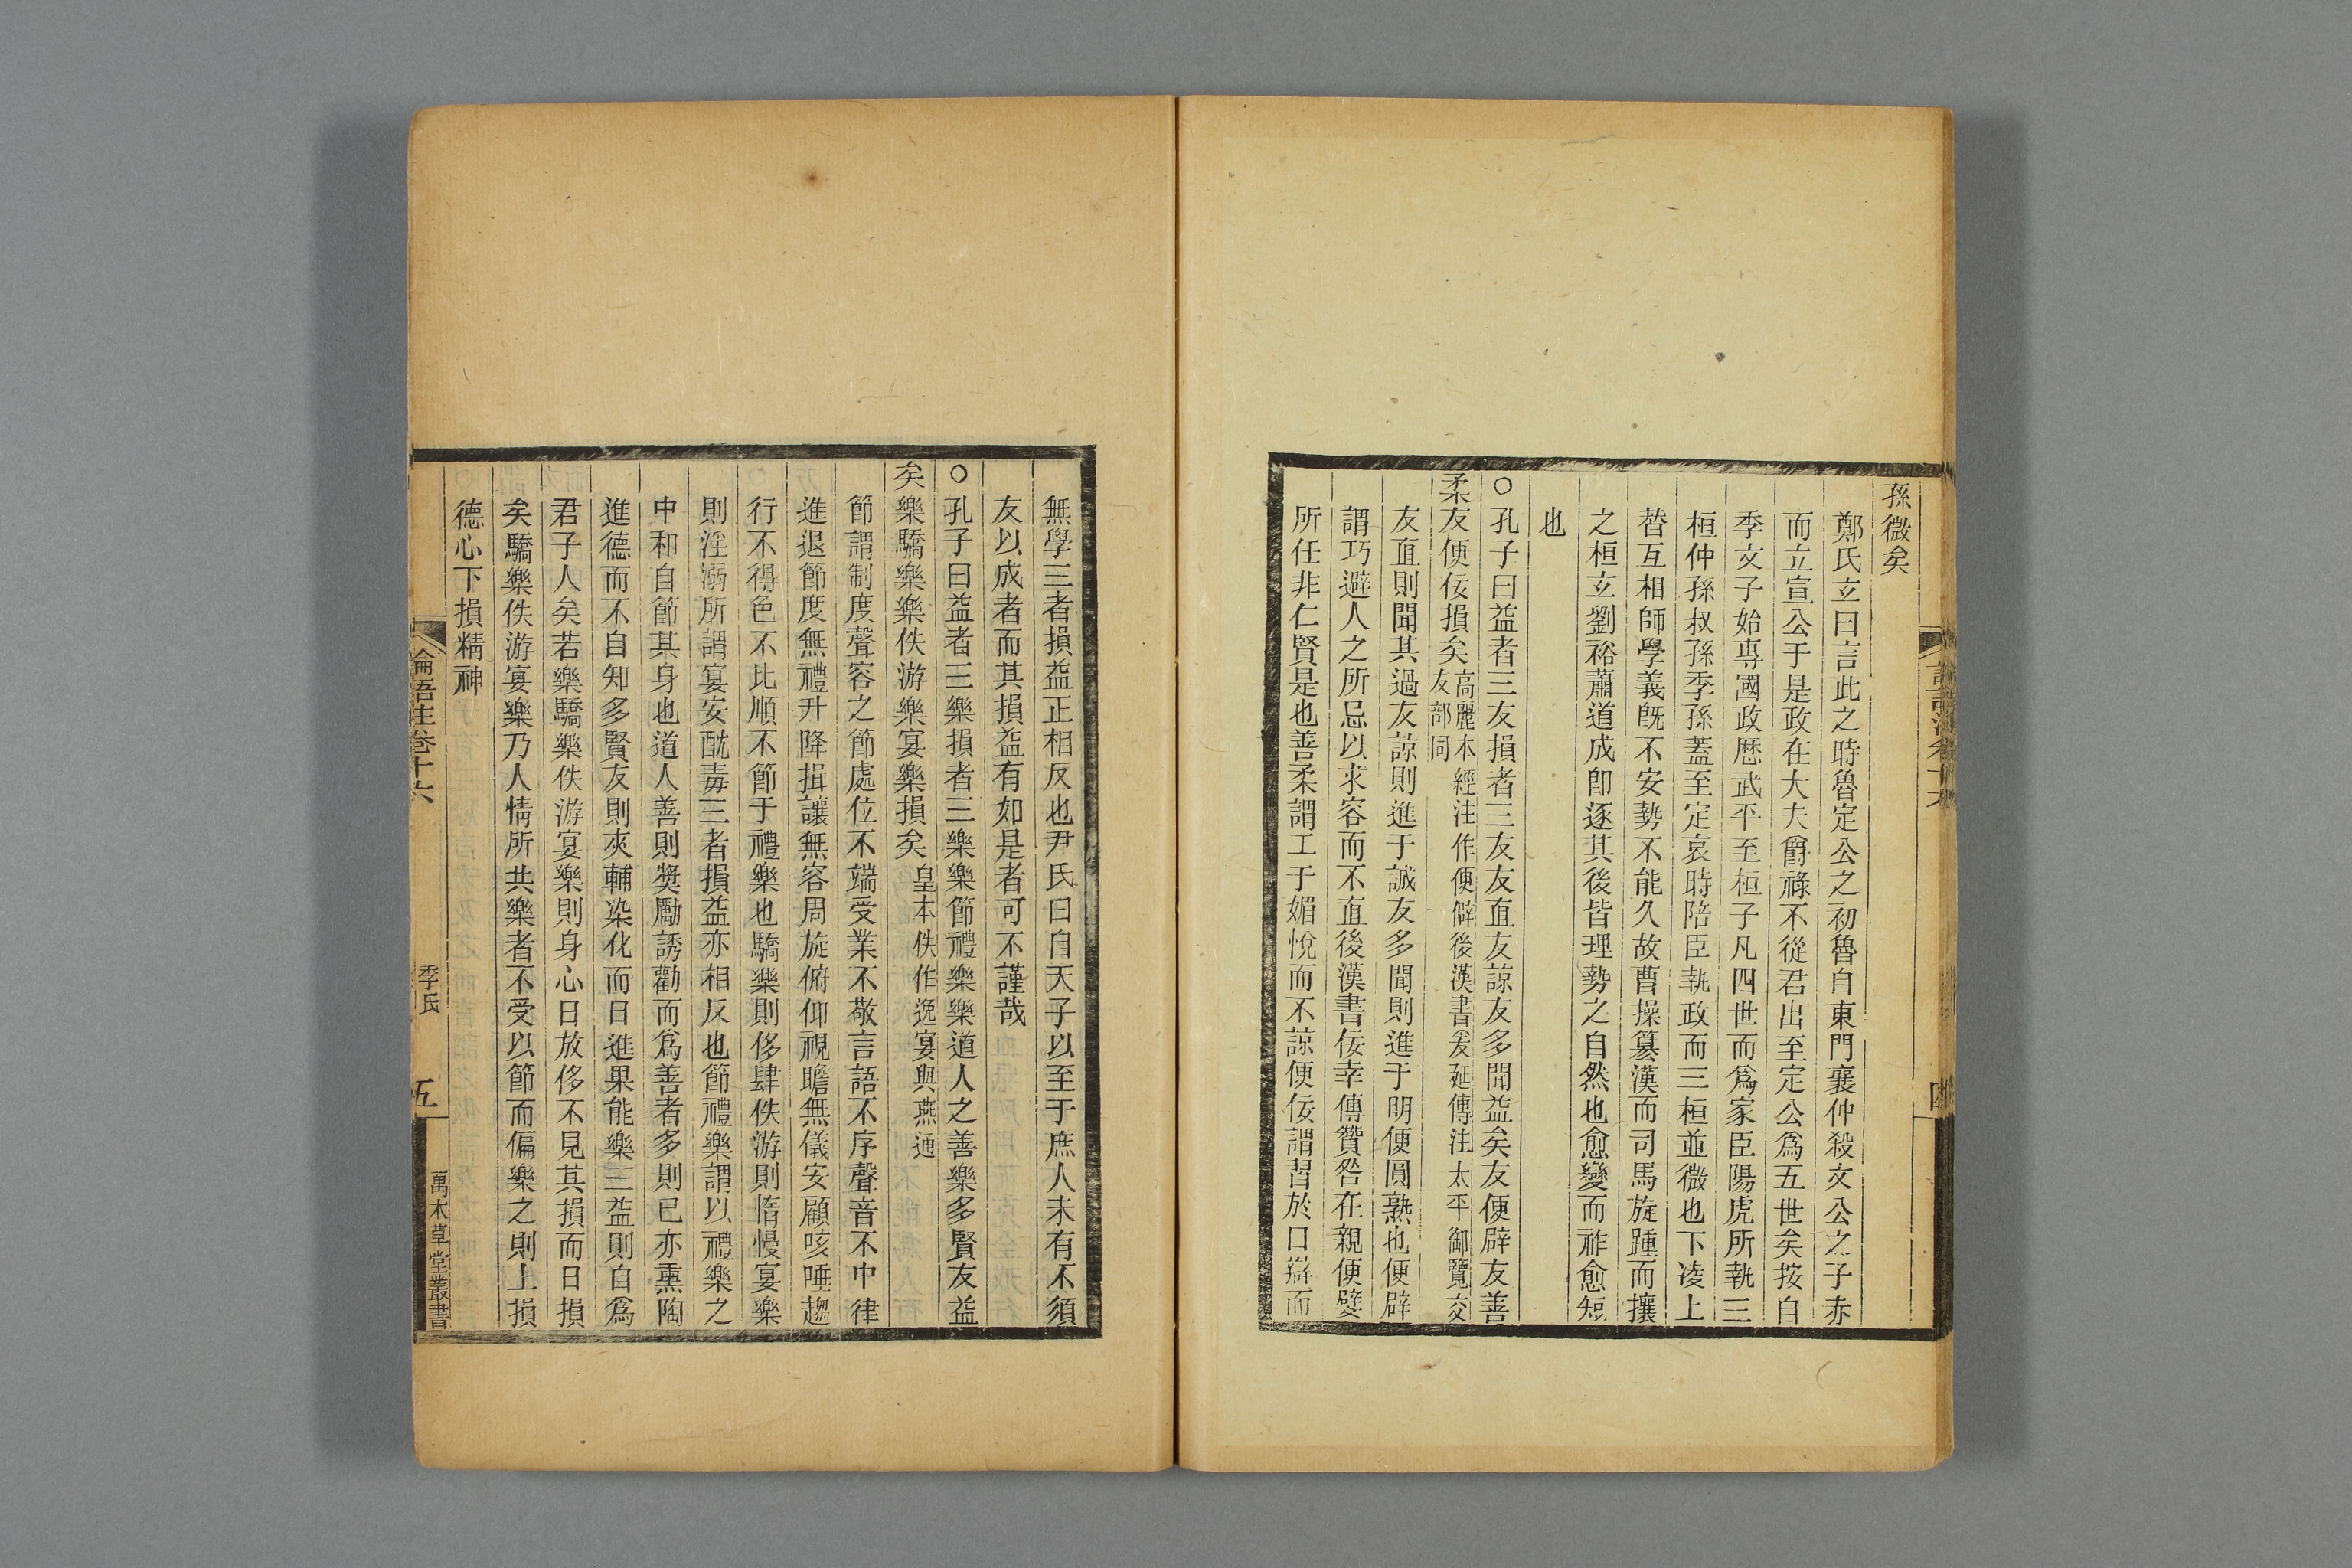 孫微矣
鄭氏玄曰言此之時魯定公之初魯自東門襄仲殺文公之子赤
而立宣公于是政在大夫爵祿不從君出至定公爲五世矣按自
季文子始專國政歷武平至桓子凡四世而爲家臣陽虎所執三
桓仲孫叔孫季孫蓋至定哀時陪臣執政而三桓並微也下凌上
替互相師學義旣不安勢不能久故曹操篡漢而司馬旋踵而攘
之桓玄劉裕蕭道成卽逐其後皆理勢之自然也愈變而祚愈短
也
○孔子曰益者三友損者三友友直友諒友多聞益矣友便辟友善
柔友便佞損矣高麗本經注作便僻後漢書爰延傳注太平御覽交友部同
友直則聞其過友諒則進于誠友多聞則進于明便圓熟也便辟
謂巧避人之所忌以求容而不直後漢書佞幸傳贊咎在親便嬖
所任非仁賢是也善柔謂工于媚悅而不諒便佞謂習於口辯而
論語注卷十六
四
無學三者損益正相反也尹氏曰自天子以至于庶人未有不須
友以成者而其損益有如是者可不謹哉
○孔子曰益者三樂損者三樂樂節禮樂樂道人之善樂多賢友益
矣樂驕樂樂佚游樂宴樂損矣皇本佚作逸宴與燕通
節謂制度聲容之節處位不端受業不敬言語不序聲音不中律
進退節度無禮升降揖讓無容周旋俯仰視瞻無儀安顧咳唾趨
行不得色不比順不節于禮樂也驕樂則侈肆佚游則惰慢宴樂
則淫溺所謂宴安酖毒三者損益亦相反也節禮樂謂以禮樂之
中和自節其身也道人善則獎勵誘勸而爲善者多則已亦熏陶
進德而不自知多賢友則夾輔染化而日進果能樂三益則自爲
君子人矣若樂驕樂佚游宴樂則身心日放侈不見其損而日損
矣驕樂佚游宴樂乃人情所共樂者不受以節而偏樂之則上損
德心下損精神
論語注卷十六
季氏
五
萬木草堂叢書